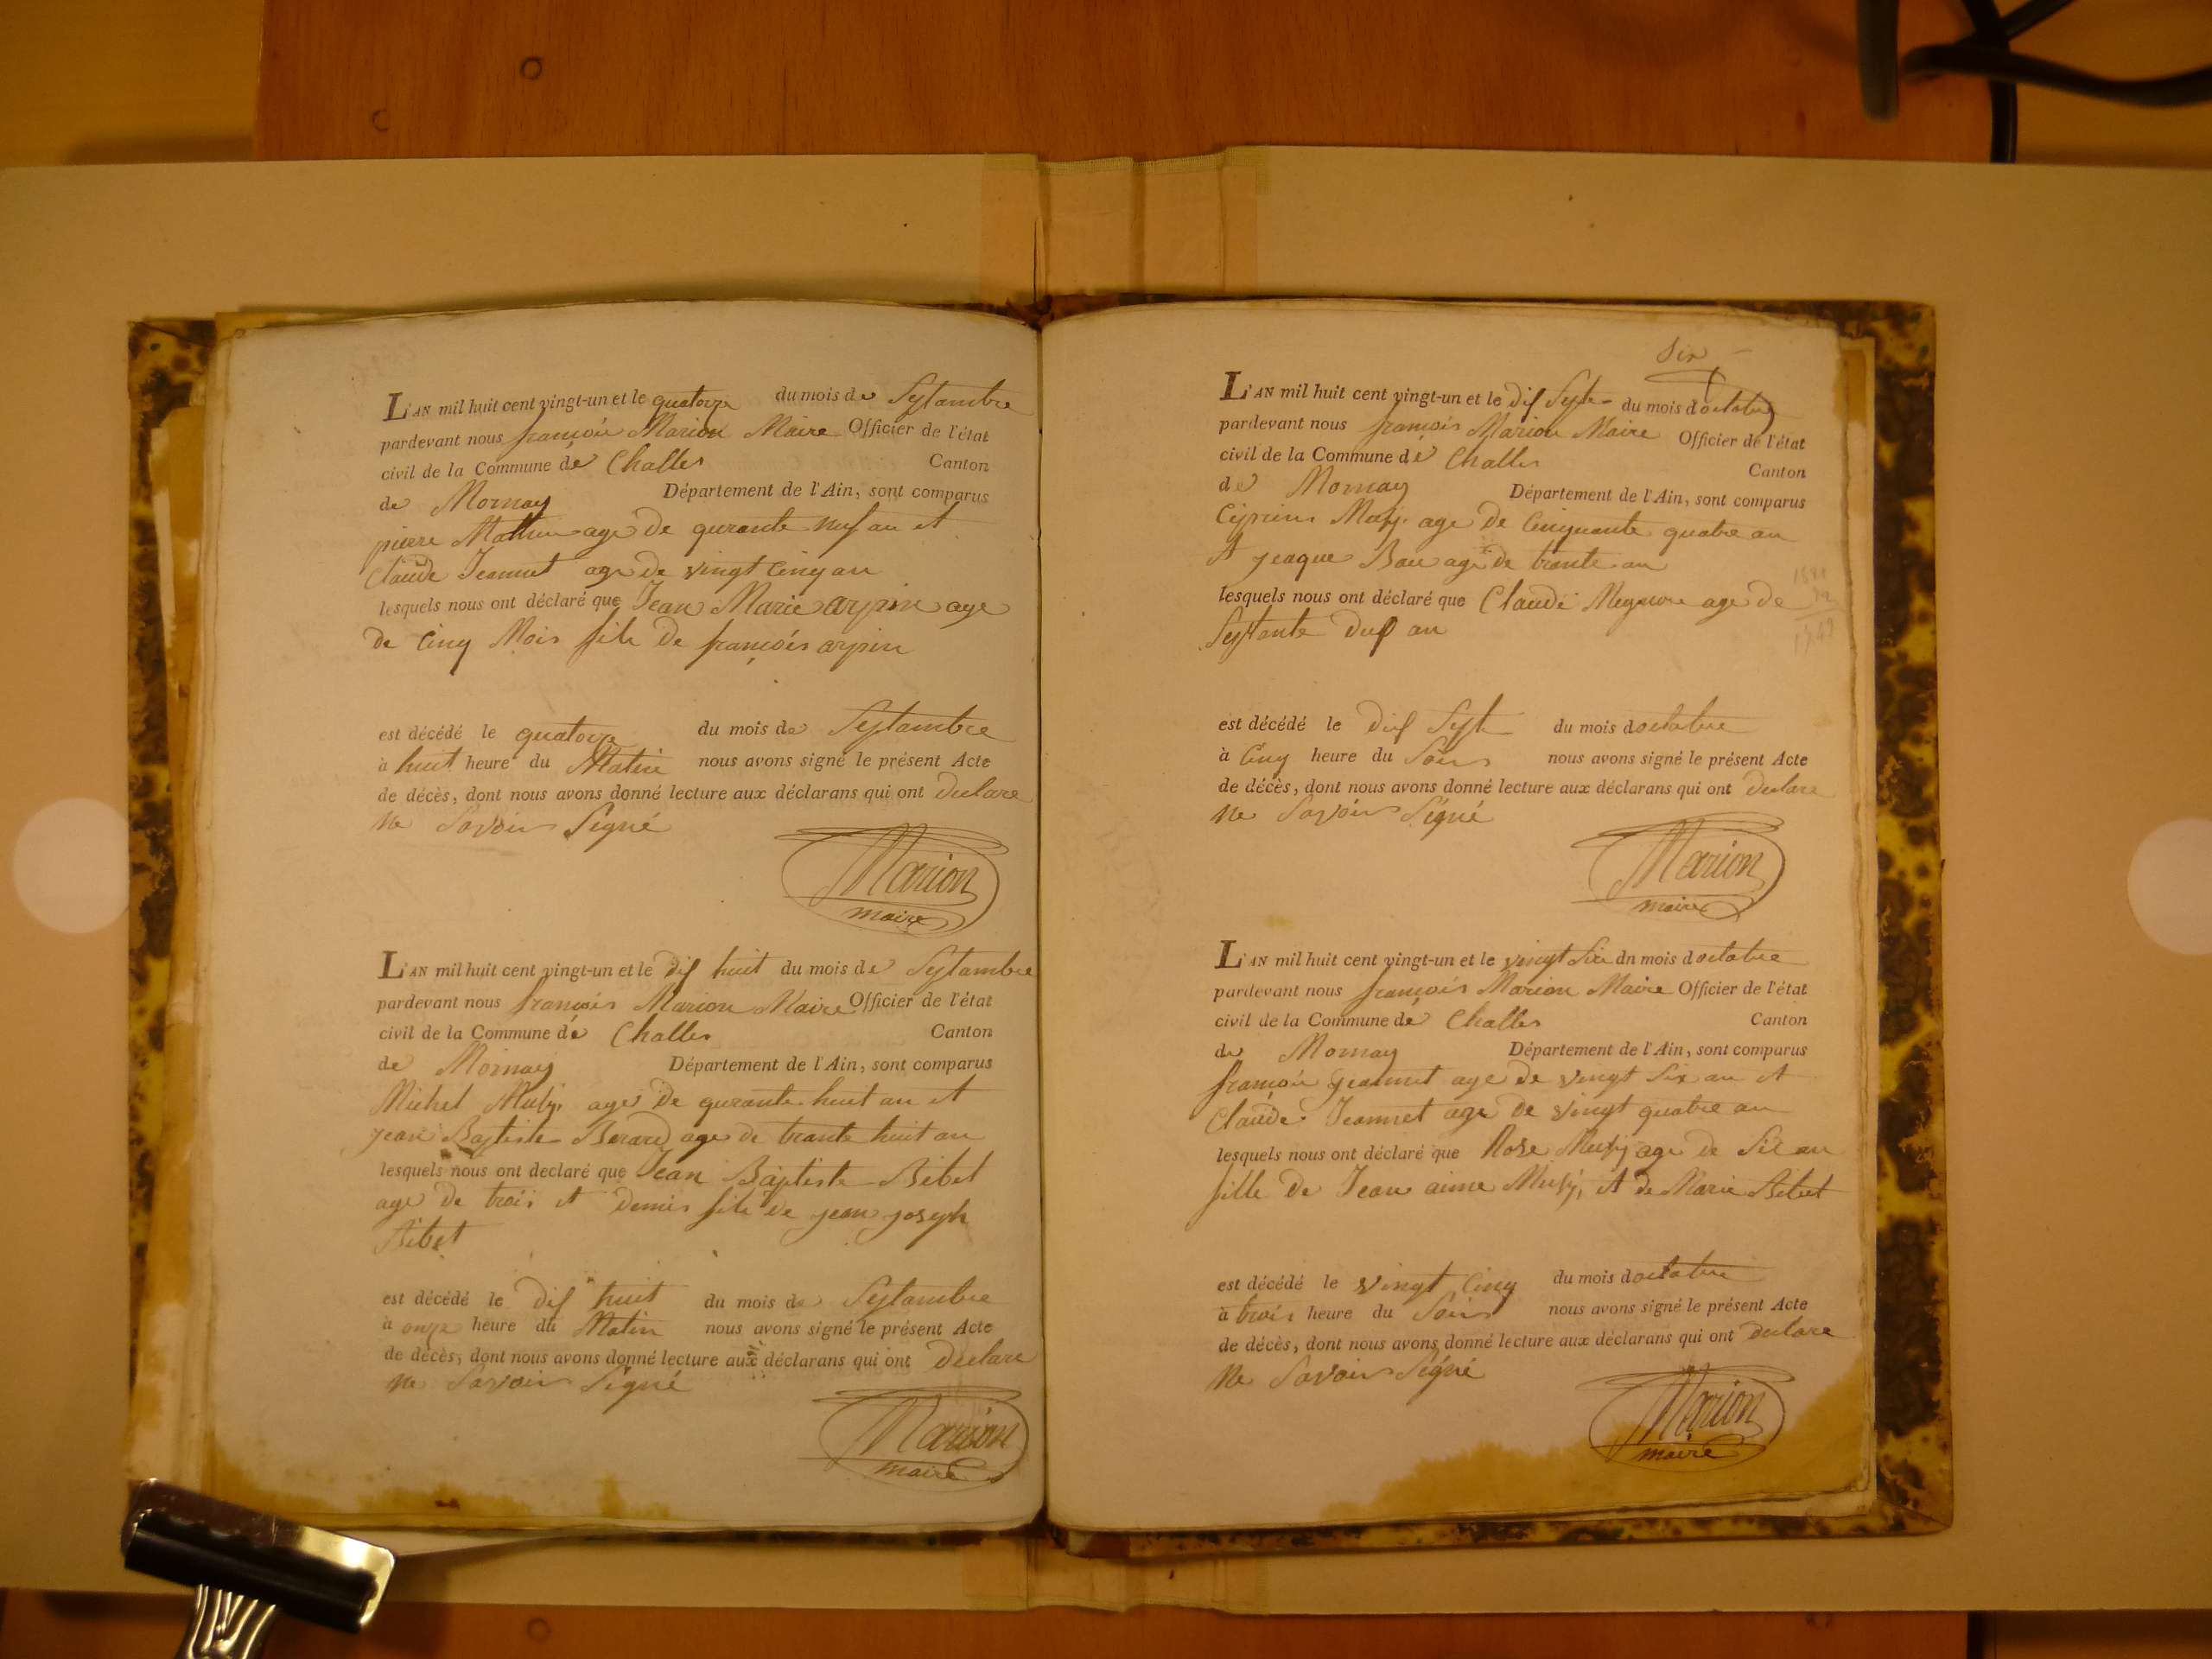 L'AN mil huit cent vingt-un et le quatorze du mois de Septambre
pardevant nous françois Marion Maire Officier de l'état
civil de la Commune de Challes Canton
de Mornay Département de l'Ain, sont comparus
pierre age de qurante neuf an et
Claude Jeannet age de vingt Cinq an
lesquels nous ont déclaré que Jean Marie arpin age
de Cinq Mois fils de françois arpin
est décédé le quatorze du mois de Septambre
à huit heure du Matin nous avons signé le présent Acte
de décès, dont nous avons donné lecture aux déclarans qui ont declare
ne Savoir Signé
Marion
maire
L'AN mil huit cent vingt-un et le dis huit du mois de Septambre
pardevant nous françois Marion Maire Officier de l'état
civil de la Commune de Challes Canton
de Mornay Département de l'Ain, sont comparus
Michel age de qurante huit an et
jean Baptiste Berard age de trante huit an
lesquels nous ont declaré que Jean Baptiste Bibet
age de trois et demis fils de jean joseph
Bibet
est décédé le dis huit du mois de Septambre
à onze heure du Matin nous avons signé le présent Acte
de décès, dont nous avons donné lecture aux déclarans qui ont declare
ne Savoir Signé
Marion
maire
Six
L'AN mil huit cent vingt-un et le dis Sept du mois doctobre
pardevant nous françois Marion Maire Officier de l'état
civil de la Commune de Challes Canton
de Mornay Département de l'Ain, sont comparus
age de Cinquante quatre an
et jeaque age de trante an
lesquels nous ont déclaré que Claude age de
Septante an
est décédé le dis Sept du mois doctobre
à Cinq heure du Soir nous avons signé le présent Acte
de décès, dont nous avons donné lecture aux déclarans qui ont declare
ne Savoir Signé
Marion
maire
L'AN mil huit cent vingt-un et le vingt Six dn mois doctobre
pardevant nous françois Marion Maire Officier de l'état
civil de la Commune de Challes Canton
de Mornay Département de l'Ain, sont comparus
françois jeannet age de vingt Six an et
Claude Jeannet age de vingt quatre an
lesquels nous ont déclaré que Rose age de Six an
fille de Jean aime et de Marie Bibet
est décédé le vingt Cinq du mois doctobre
à trois heure du Soir nous avons signé le présent Acte
de décès, dont nous avons donné lecture aux déclarans qui ont declare
ne Savoir Signé
Marion
maire